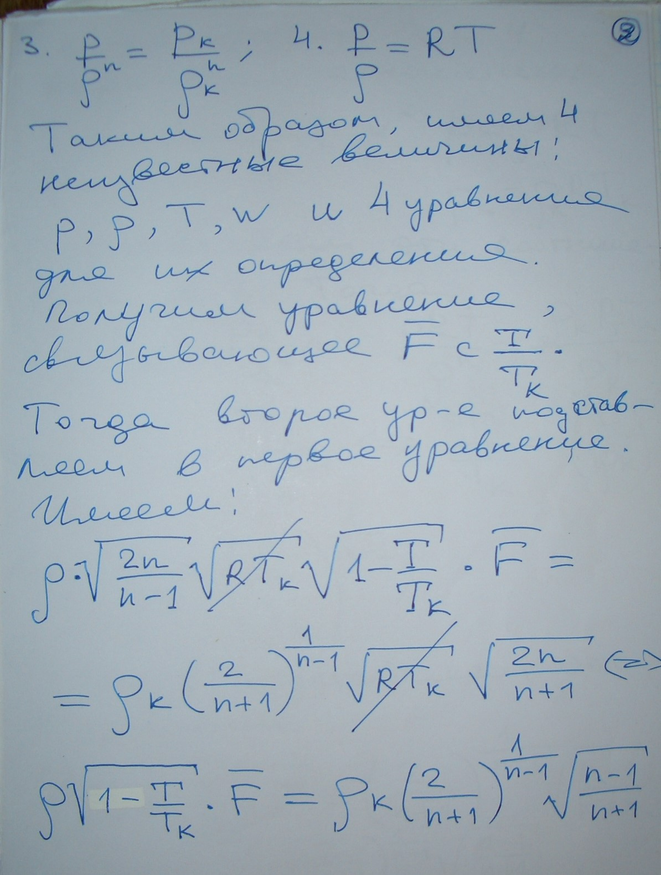 3. p/ρⁿ = pₖ/ρₖⁿ ; 4. p/ρ = RT
②
Таким образом, имеем 4
неизвестные величины:
p, ρ, T, w и 4 уравнения
для их определения.
Получим уравнение,
связывающее F̅ с T/Tₖ.
Тогда второе ур-е подстав-
ляем в первое уравнение.
Имеем:
ρ·√(2n/(n-1)) √(RTₖ) √(1-T/Tₖ) · F̅ =
= ρₖ (2/(n+1))^(1/(n-1)) √(RTₖ) √(2n/(n+1)) <=>
ρ√(1-T/Tₖ) · F̅ = ρₖ (2/(n+1))^(1/(n-1)) √((n-1)/(n+1))